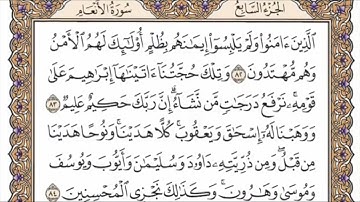 سُورَةُ الأَنْعَامِ الجُزْءُ السَّابِعُ
الَّذِينَ ءَامَنُوا۟ وَلَمْ يَلْبِسُوٓا۟ إِيمَٰنَهُم بِظُلْمٍ أُو۟لَٰٓئِكَ لَهُمُ ٱلْأَمْنُ
وَهُم مُّهْتَدُونَ ٨٢ وَتِلْكَ حُجَّتُنَآ ءَاتَيْنَٰهَآ إِبْرَٰهِيمَ عَلَىٰ
قَوْمِهِۦ ۚ نَرْفَعُ دَرَجَٰتٍ مَّن نَّشَآءُ ۗ إِنَّ رَبَّكَ حَكِيمٌ عَلِيمٌ ٨٣
وَوَهَبْنَا لَهُۥٓ إِسْحَٰقَ وَيَعْقُوبَ ۚ كُلًّا هَدَيْنَا ۚ وَنُوحًا هَدَيْنَا
مِن قَبْلُ ۖ وَمِن ذُرِّيَّتِهِۦ دَاوُۥدَ وَسُلَيْمَٰنَ وَأَيُّوبَ وَيُوسُفَ
وَمُوسَىٰ وَهَٰرُونَ ۚ وَكَذَٰلِكَ نَجْزِى ٱلْمُحْسِنِينَ ٨٤